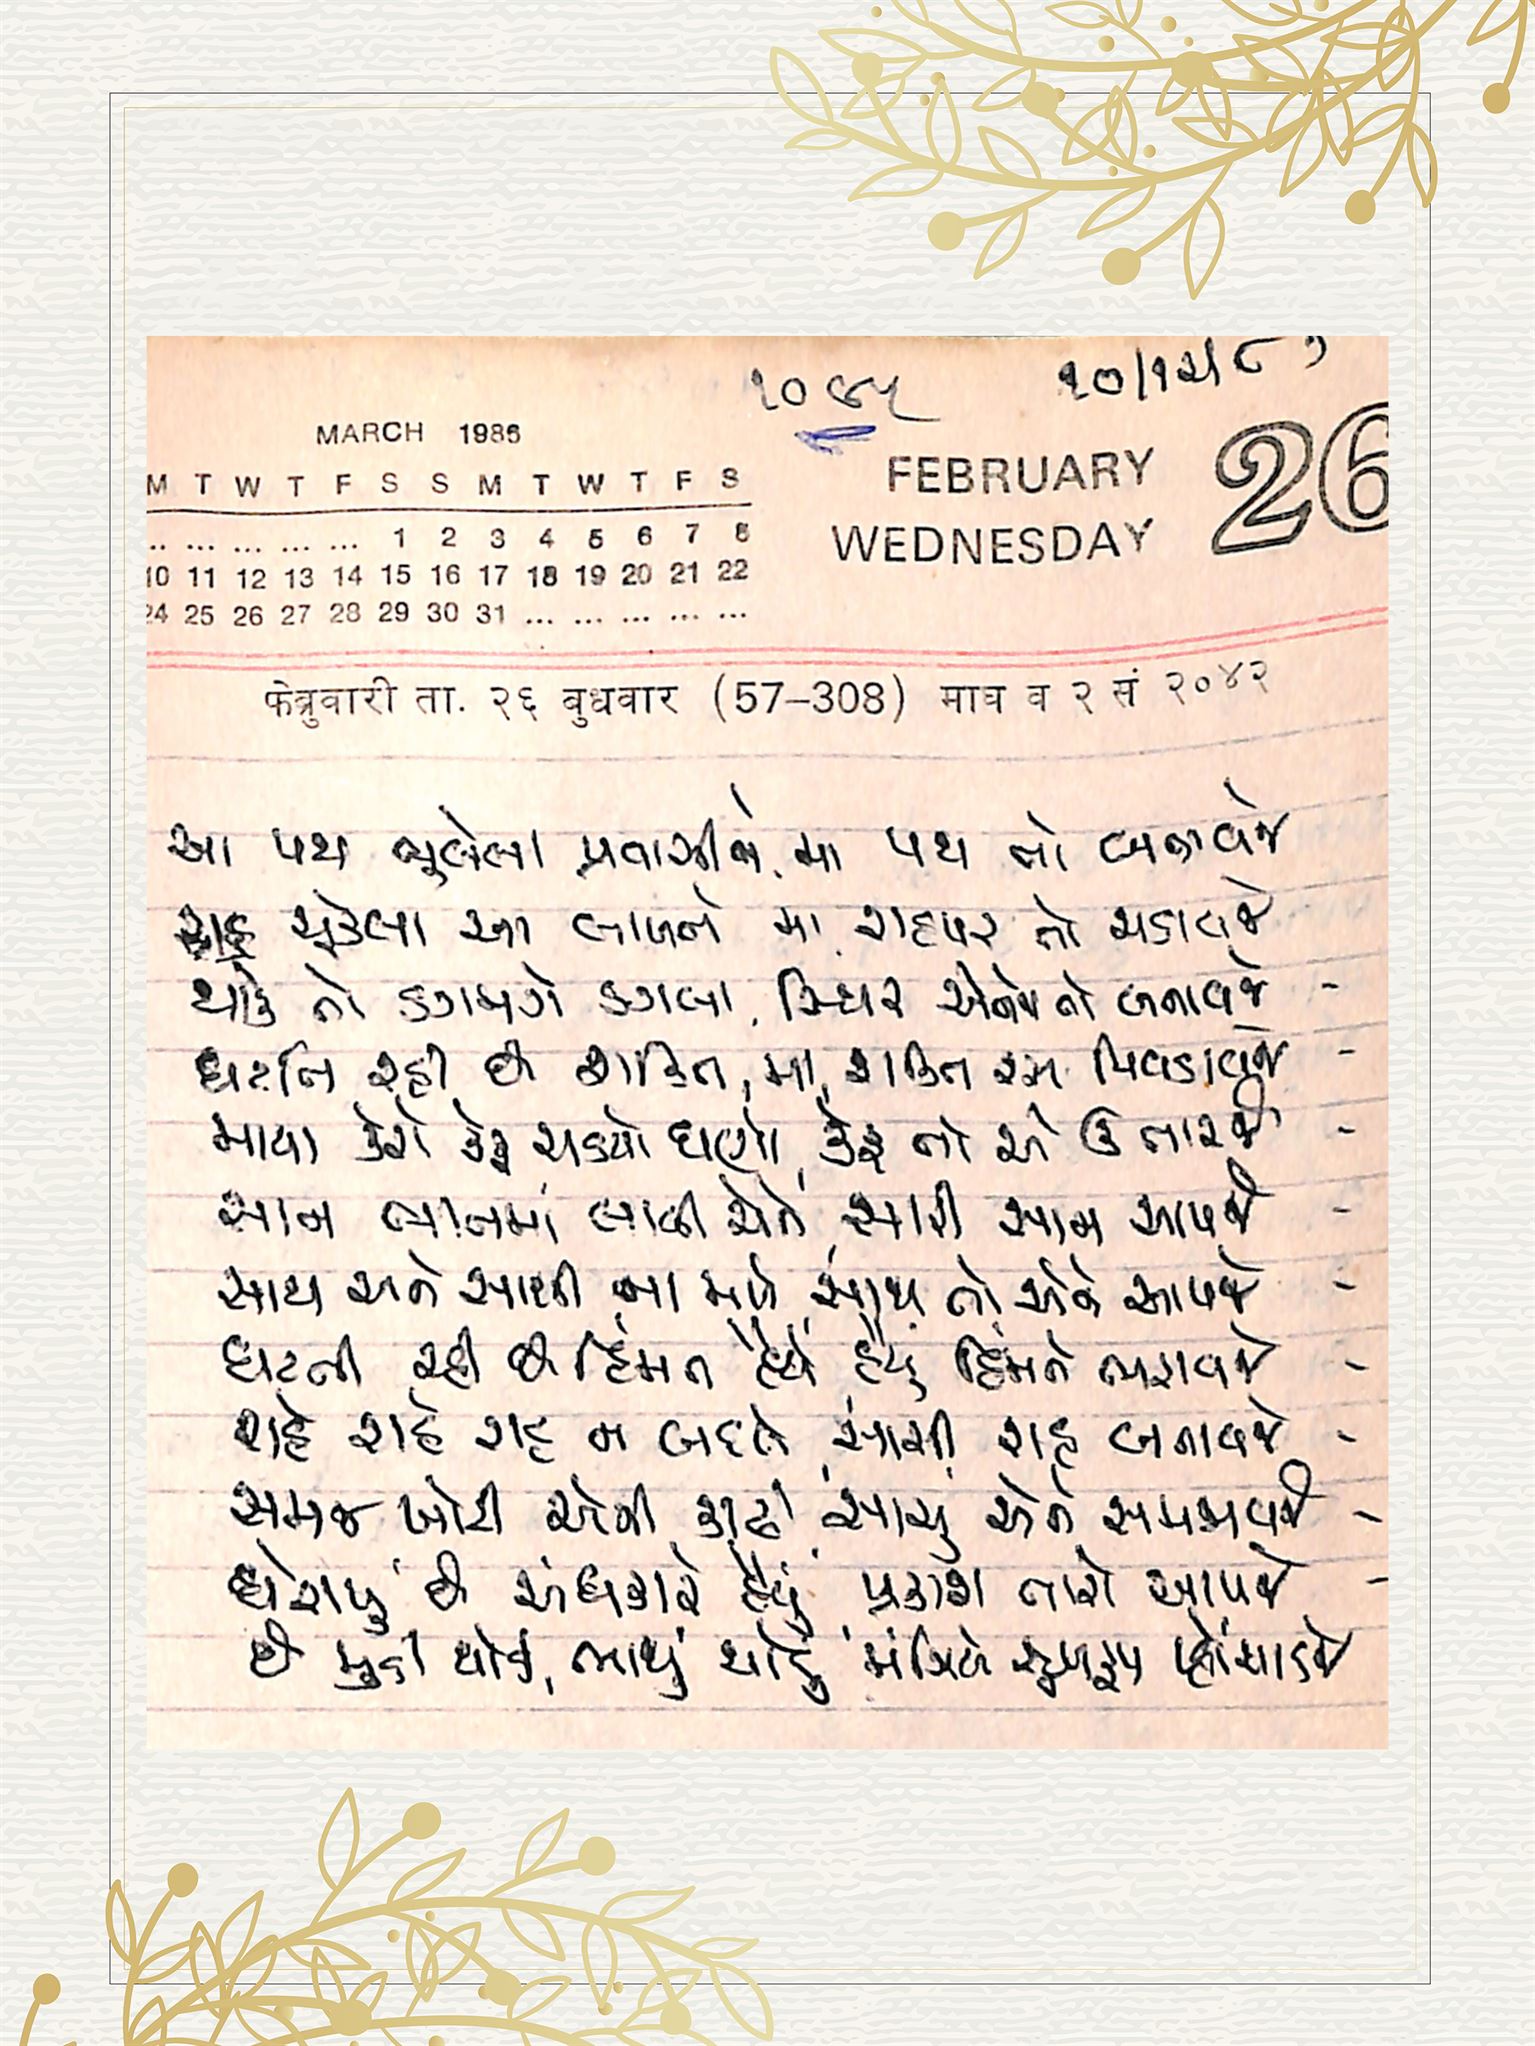 ૧૦૪૫
MARCH 1986
M T W T F S S M T W T F S
.. ... ... ... ... 1 2 3 4 5 6 7 8
10 11 12 13 14 15 16 17 18 19 20 21 22
24 25 26 27 28 29 30 31 ... ... ... ... ...
FEBRUARY
WEDNESDAY
26
फेब्रुवारी ता. २६ बुधवार (57–308) माघ व २ सं २०४२
આ પથ ભુલેલા પ્રવાસીને, મા પથ તો બતાવજે
રાહ ચૂકેલા આ બાળને મા રાહપર તો ચડાવજે
થાકે તો ડગમગે ડગલા, સ્થિર એને તો બનાવજે -
ઘટતિ રહી છે શક્તિ, મા, શક્તિ રસ પિવડાવજે -
માયા કેરો કેફ ચડ્યો ઘણો, કેફ તો એ ઉતારજે -
સાન ભાનમાં લાવી એને, સારી સાન આપજે -
સાથ અને સાથી ના મળે, સાથ તો એને આપજે -
ઘટતી રહી છે હિંમત હૈયે, હૈયું હિંમતે ભરાવજે -
રાહે રાહે રાહ ન બદલે, સાચી રાહ બનાવજે -
સમજ ખોટી એની કાઢી, સાચું એને સમજાવજે -
ઘેરાયું છે અંધકારે હૈયું, પ્રકાશ તારો આપજે -
છે મુડી થોડી, ભાથું થોડું, મંઝિલે સુખરૂપ પહોંચાડજે